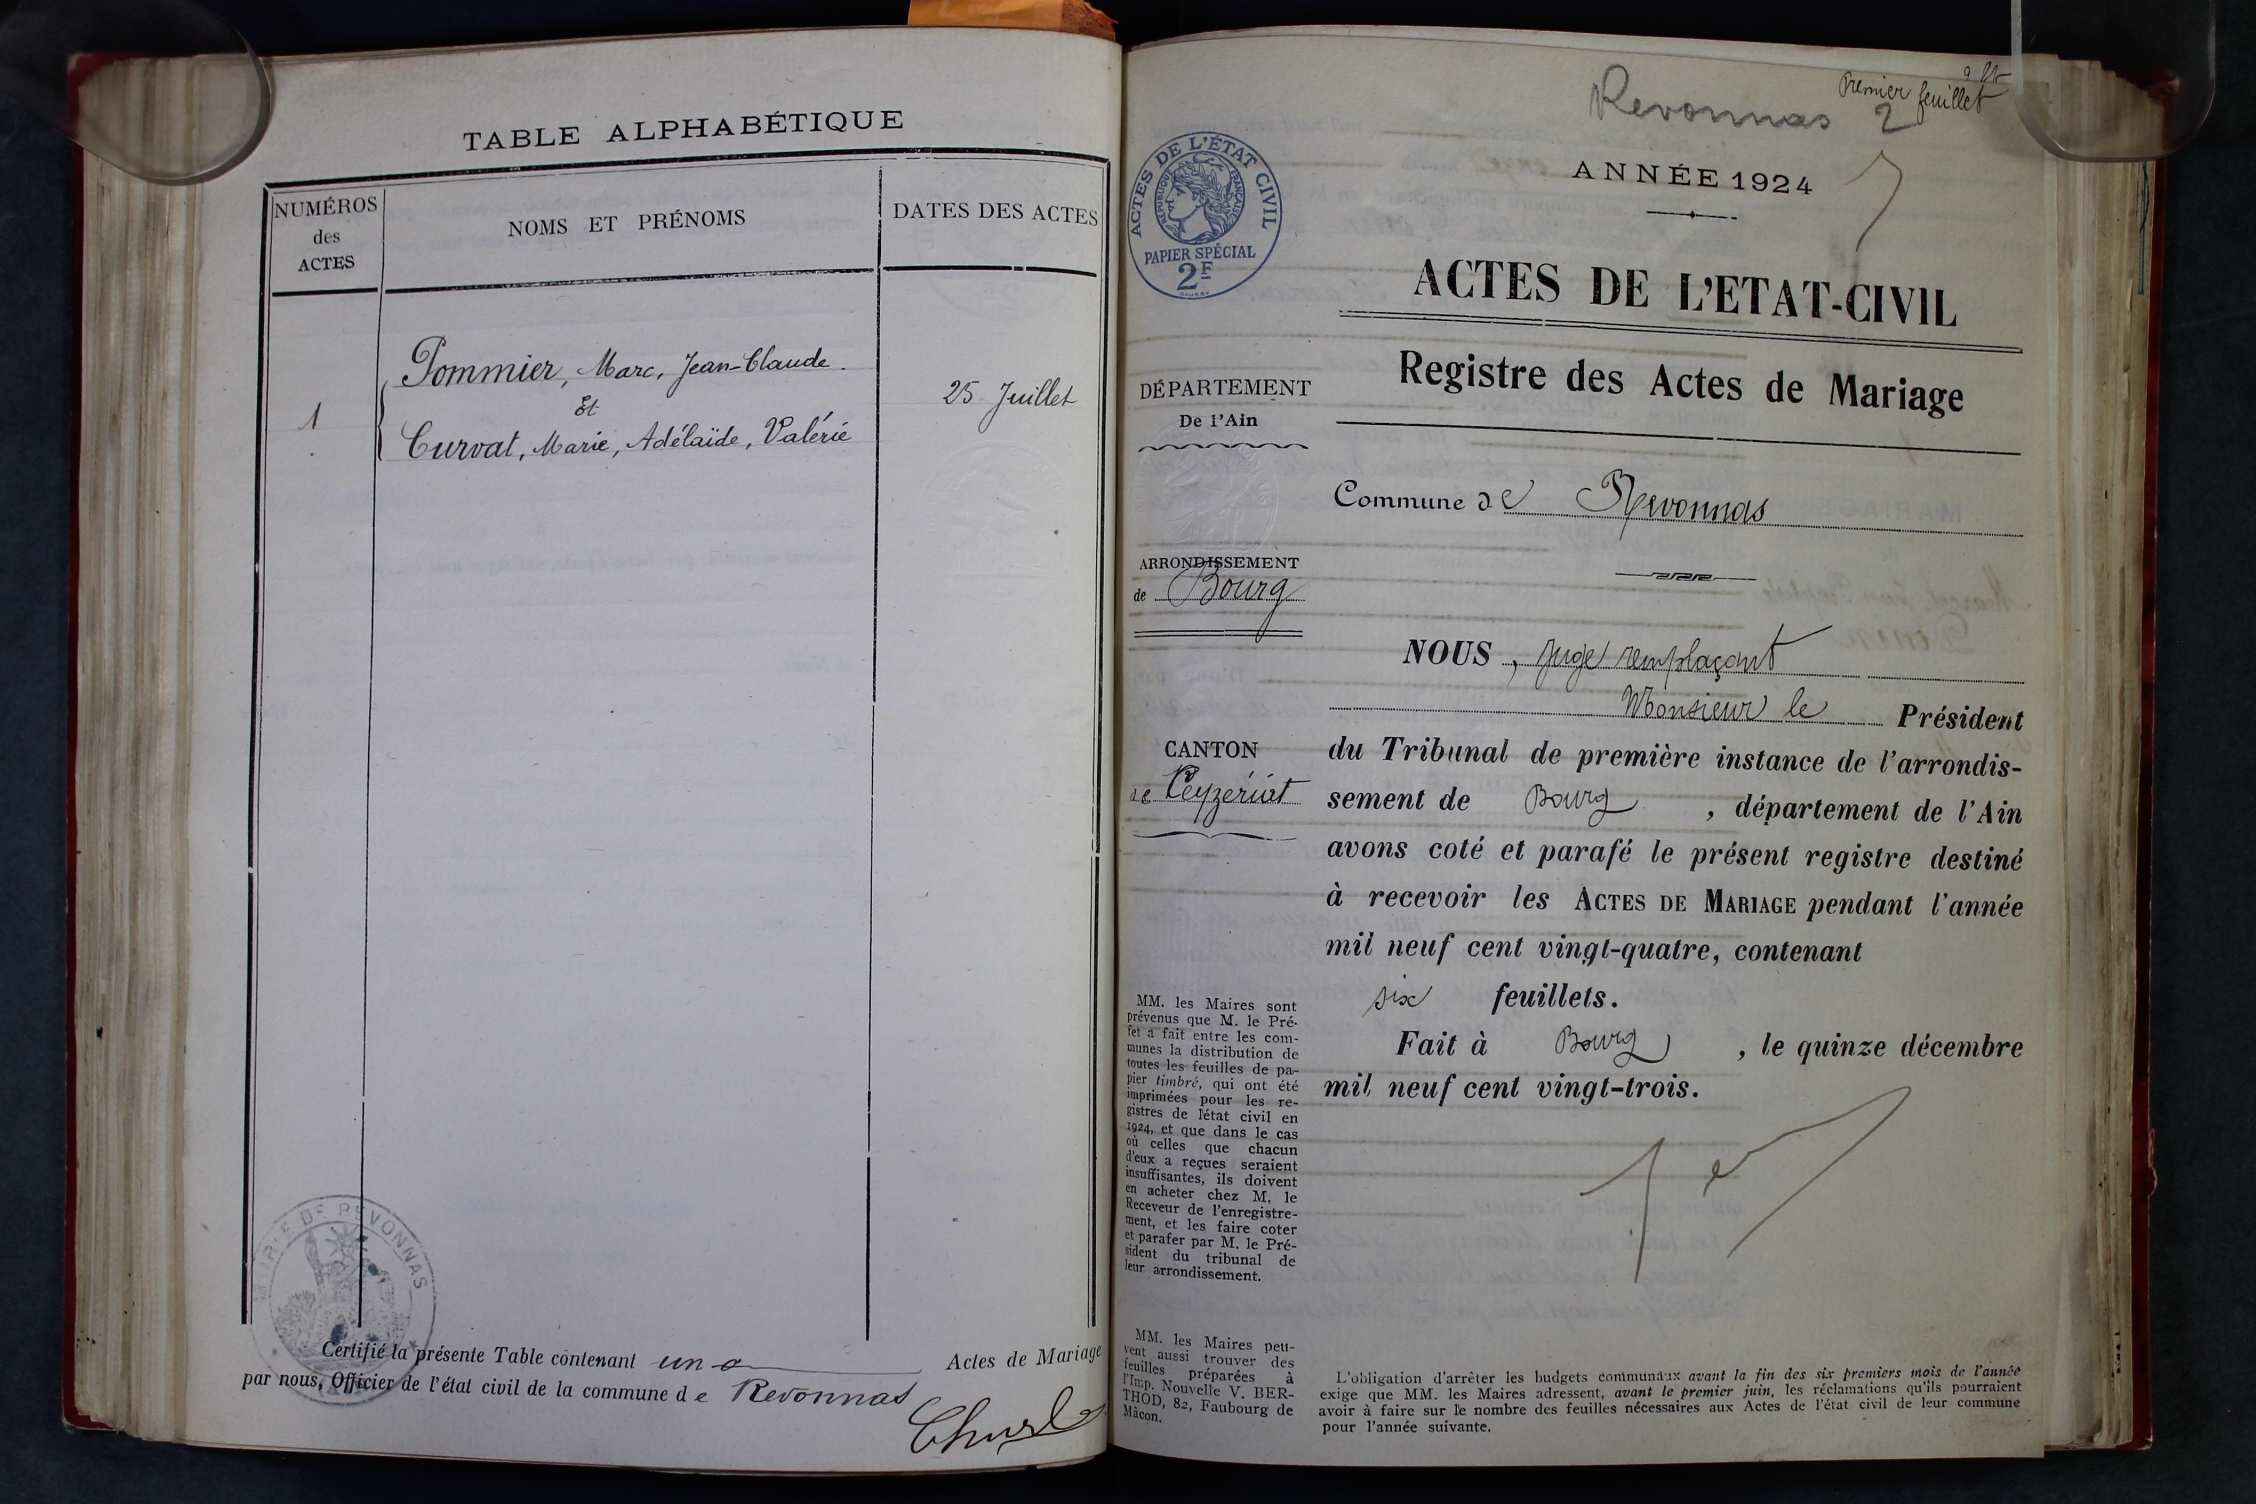 TABLE ALPHABÉTIQUE
NUMÉROS
des
ACTES
NOMS ET PRÉNOMS
DATES DES ACTES
1
Pommier, Marc, Jean-Claude.
Et
Curvat, Marie, Adélaïde, Valérie
25 Juillet
MAIRIE DE REVONNAS
Certifié la présente Table contenant un Actes de Mariage
par nous, Officier de l'état civil de la commune de Revonnas
Revonnas 2
Premier feuillet
ANNÉE 1924
ACTES DE L'ÉTAT CIVIL
RÉPUBLIQUE FRANÇAISE
PAPIER SPÉCIAL
2F
ACTES DE L'ETAT-CIVIL
Registre des Actes de Mariage
DÉPARTEMENT
De l'Ain
Commune de Revonnas
ARRONDISSEMENT
de Bourg
CANTON
de Ceyzériat
NOUS, Juge remplaçant
Monsieur le Président
du Tribunal de première instance de l'arrondis-
sement de Bourg, département de l'Ain
avons coté et parafé le présent registre destiné
à recevoir les ACTES DE MARIAGE pendant l'année
mil neuf cent vingt-quatre, contenant
six feuillets.
Fait à Bourg, le quinze décembre
mil neuf cent vingt-trois.
MM. les Maires sont
prévenus que M. le Pré-
fet a fait entre les com-
munes la distribution de
toutes les feuilles de pa-
pier timbré, qui ont été
imprimées pour les re-
gistres de l'état civil en
1924, et que dans le cas
où celles que chacun
d'eux a reçues seraient
insuffisantes, ils doivent
en acheter chez M. le
Receveur de l'enregistre-
ment, et les faire coter
et parafer par M. le Pré-
sident du tribunal de
leur arrondissement.
MM. les Maires peu-
vent aussi trouver des
feuilles préparées à
l'Imp. Nouvelle V. BER-
THOD, 82, Faubourg de
Mâcon.
L'obligation d'arrêter les budgets communaux avant la fin des six premiers mois de l'année
exige que MM. les Maires adressent, avant le premier juin, les réclamations qu'ils pourraient
avoir à faire sur le nombre des feuilles nécessaires aux Actes de l'état civil de leur commune
pour l'année suivante.